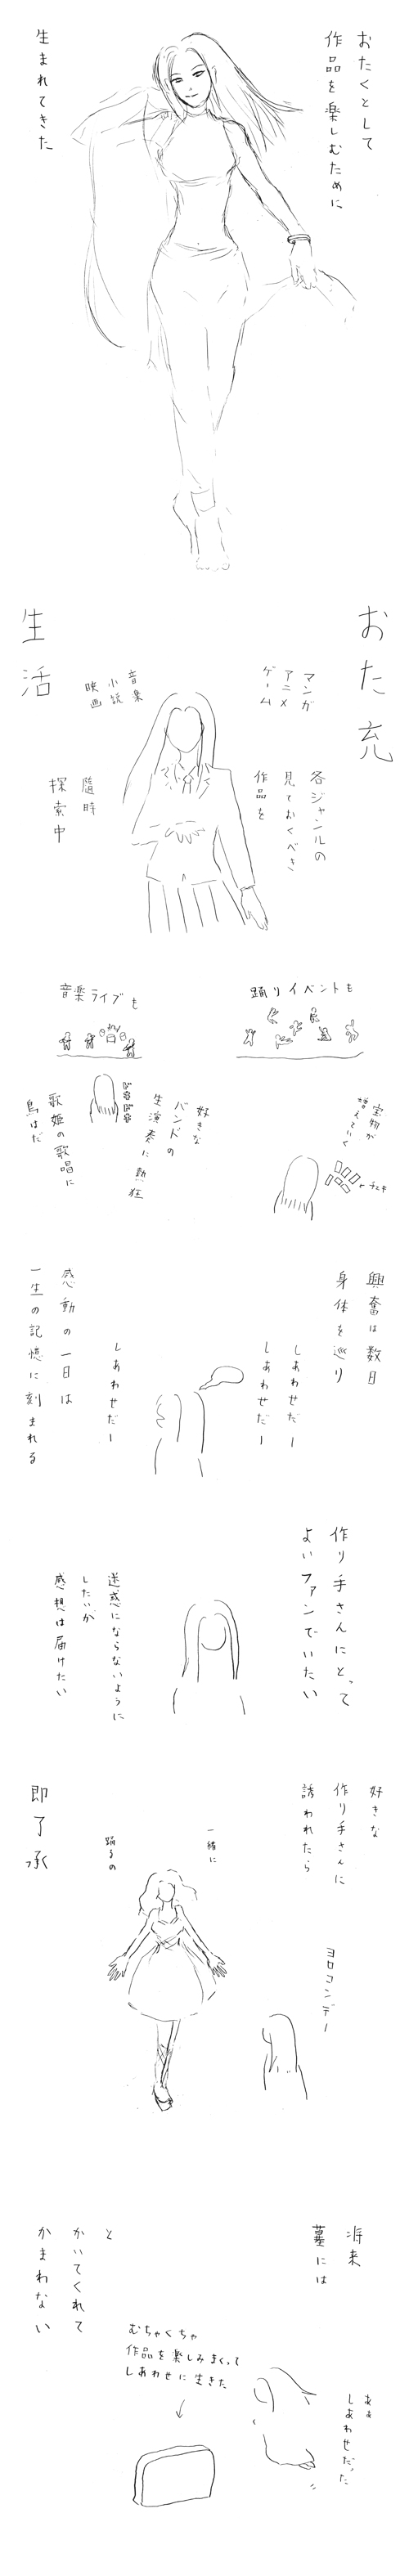 おたくとして
作品を楽しむために
生まれてきた
おた充
生活
マンガ
アニメ
ゲーム
音楽
小説
映画
各ジャンルの
見ておくべき
作品を
随時
探索中
踊りイベントも
音楽ライブも
宝物が
増えていく
チェキ
好きな
バンドの
生演奏に熱狂
ドキドキ
歌姫の歌唱に
鳥はだ
興奮は数日
身体を巡り
しあわせだー
しあわせだー
しあわせだー
感動の一日は
一生の記憶に刻まれる
作り手さんにとって
よいファンでいたい
迷惑にならないように
したいが、
感想は届けたい
好きな
作り手さんに
誘われたら
一緒に
踊るの
即了承
ヨロコンデー
将来
墓には
むちゃくちゃ
作品を楽しみまくって
しあわせに生きた
と
かいてくれて
かまわない
ああ
しあわせだった